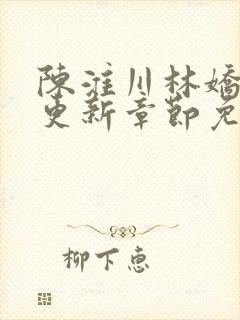 陳淮川林嬌
更新章節免
柳下惠